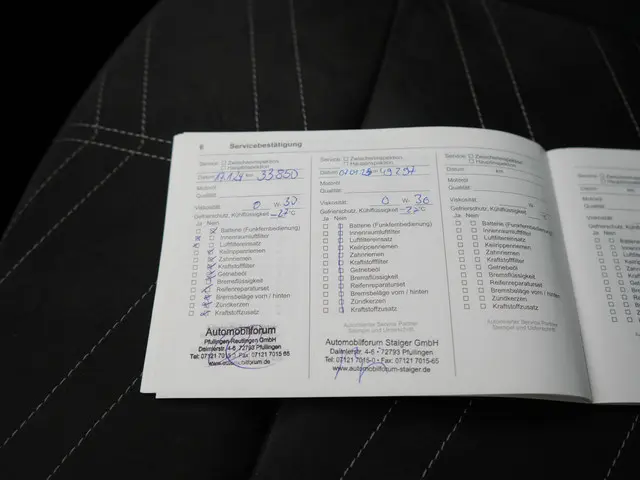 6 Servicebestätigung
Service: Zwischeninspektion
Hauptinspektion
Datum km 33850
Motoröl
Qualität:
Viskosität: 0 W- 30
Gefrierschutz, Kühlflüssigkeit -27°C
Ja Nein
Batterie (Funkfernbedienung)
Innenraumluftfilter
Luftfiltereinsatz
Keilrippenriemen
Zahnriemen
Kraftstofffilter
Getriebeöl
Bremsflüssigkeit
Reifenreparaturset
Bremsbeläge vorn / hinten
Zündkerzen
Kraftstoffzusatz
Automobilforum
Pfullingen-Reutlingen GmbH
Daimlerstr. 4-6 72793 Pfullingen
Tel: 07121 7015-0 Fax: 07121 7015-65
www.automobilforum.de
Service: Zwischeninspektion
Hauptinspektion
Datum km 49297
Motoröl
Qualität:
Viskosität: 0 W- 30
Gefrierschutz, Kühlflüssigkeit -27°C
Ja Nein
Batterie (Funkfernbedienung)
Innenraumluftfilter
Luftfiltereinsatz
Keilrippenriemen
Zahnriemen
Kraftstofffilter
Getriebeöl
Bremsflüssigkeit
Reifenreparaturset
Bremsbeläge vorn / hinten
Zündkerzen
Kraftstoffzusatz
Autorisierter Service Partner
Stempel und Unterschrift
Automobilforum Staiger GmbH
Daimlerstr. 4-6 • 72793 Pfullingen
Tel: 07121 7015-0 • Fax: 07121 7015-65
www.automobilforum-staiger.de
Service: Zwischeninspektion
Hauptinspektion
Datum km
Motoröl
Qualität:
Viskosität: W-
Gefrierschutz, Kühlflüssigkeit °C
Ja Nein
Batterie (Funkfernbedienung)
Innenraumluftfilter
Luftfiltereinsatz
Keilrippenriemen
Zahnriemen
Kraftstofffilter
Getriebeöl
Bremsflüssigkeit
Reifenreparaturset
Bremsbeläge vorn / hinten
Zündkerzen
Kraftstoffzusatz
Autorisierter Service Partner
Stempel und Unterschrift
Service:
Datum
Motoröl
Qualität:
Viskosität:
Ja Nein